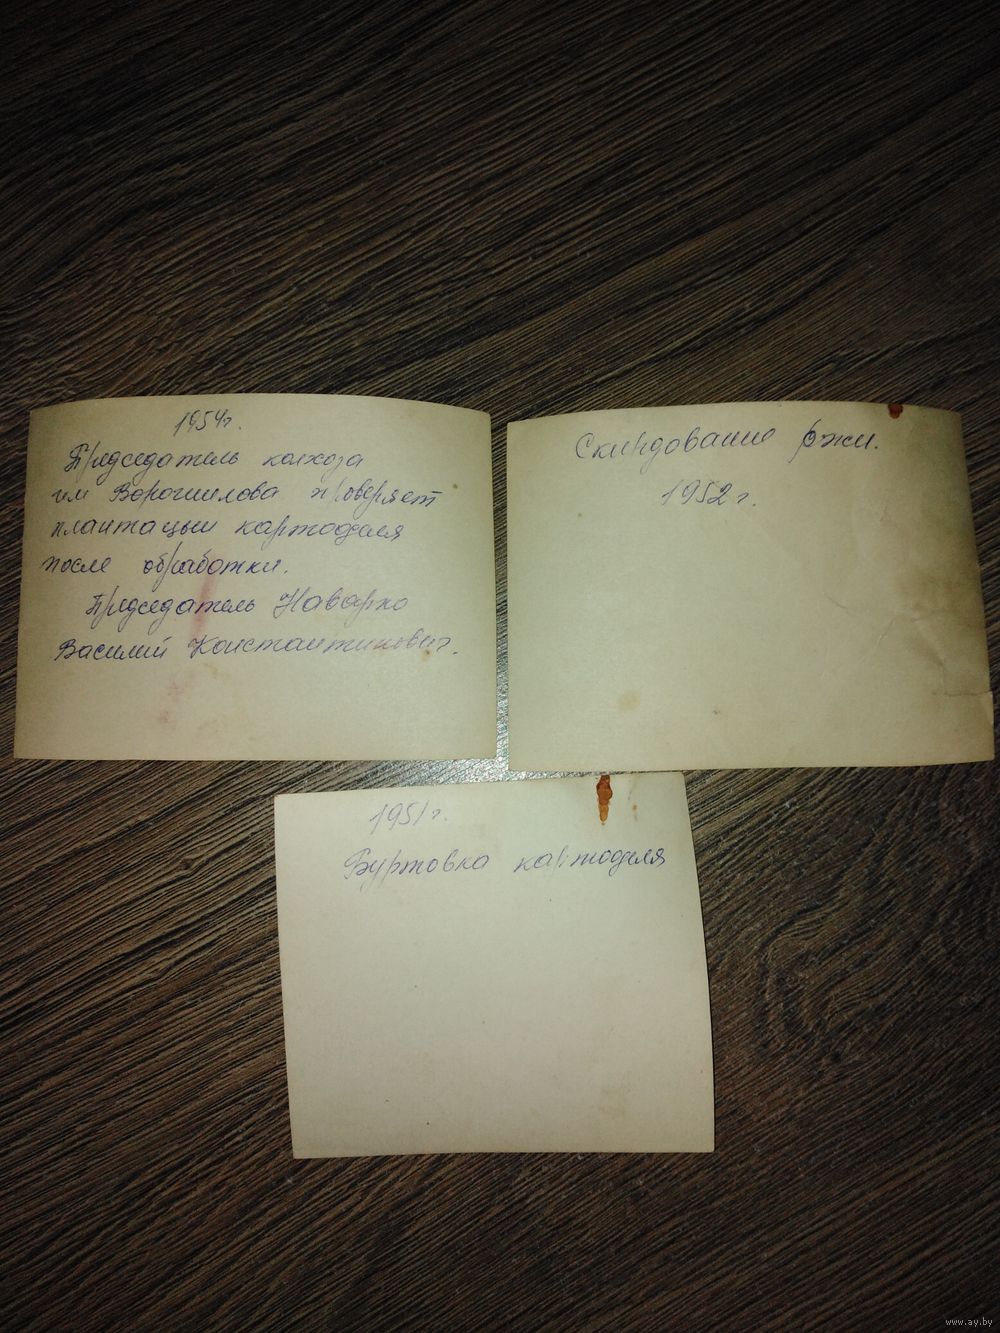 1954г.
Председатель колхоза
им Ворошилова проверяет
плантацыи картофеля
после обработки.
Председатель Наварко
Василий Константинович.
Скирдование ржи.
1952 г.
1951 г.
Буртовка картофеля
www.ay.by